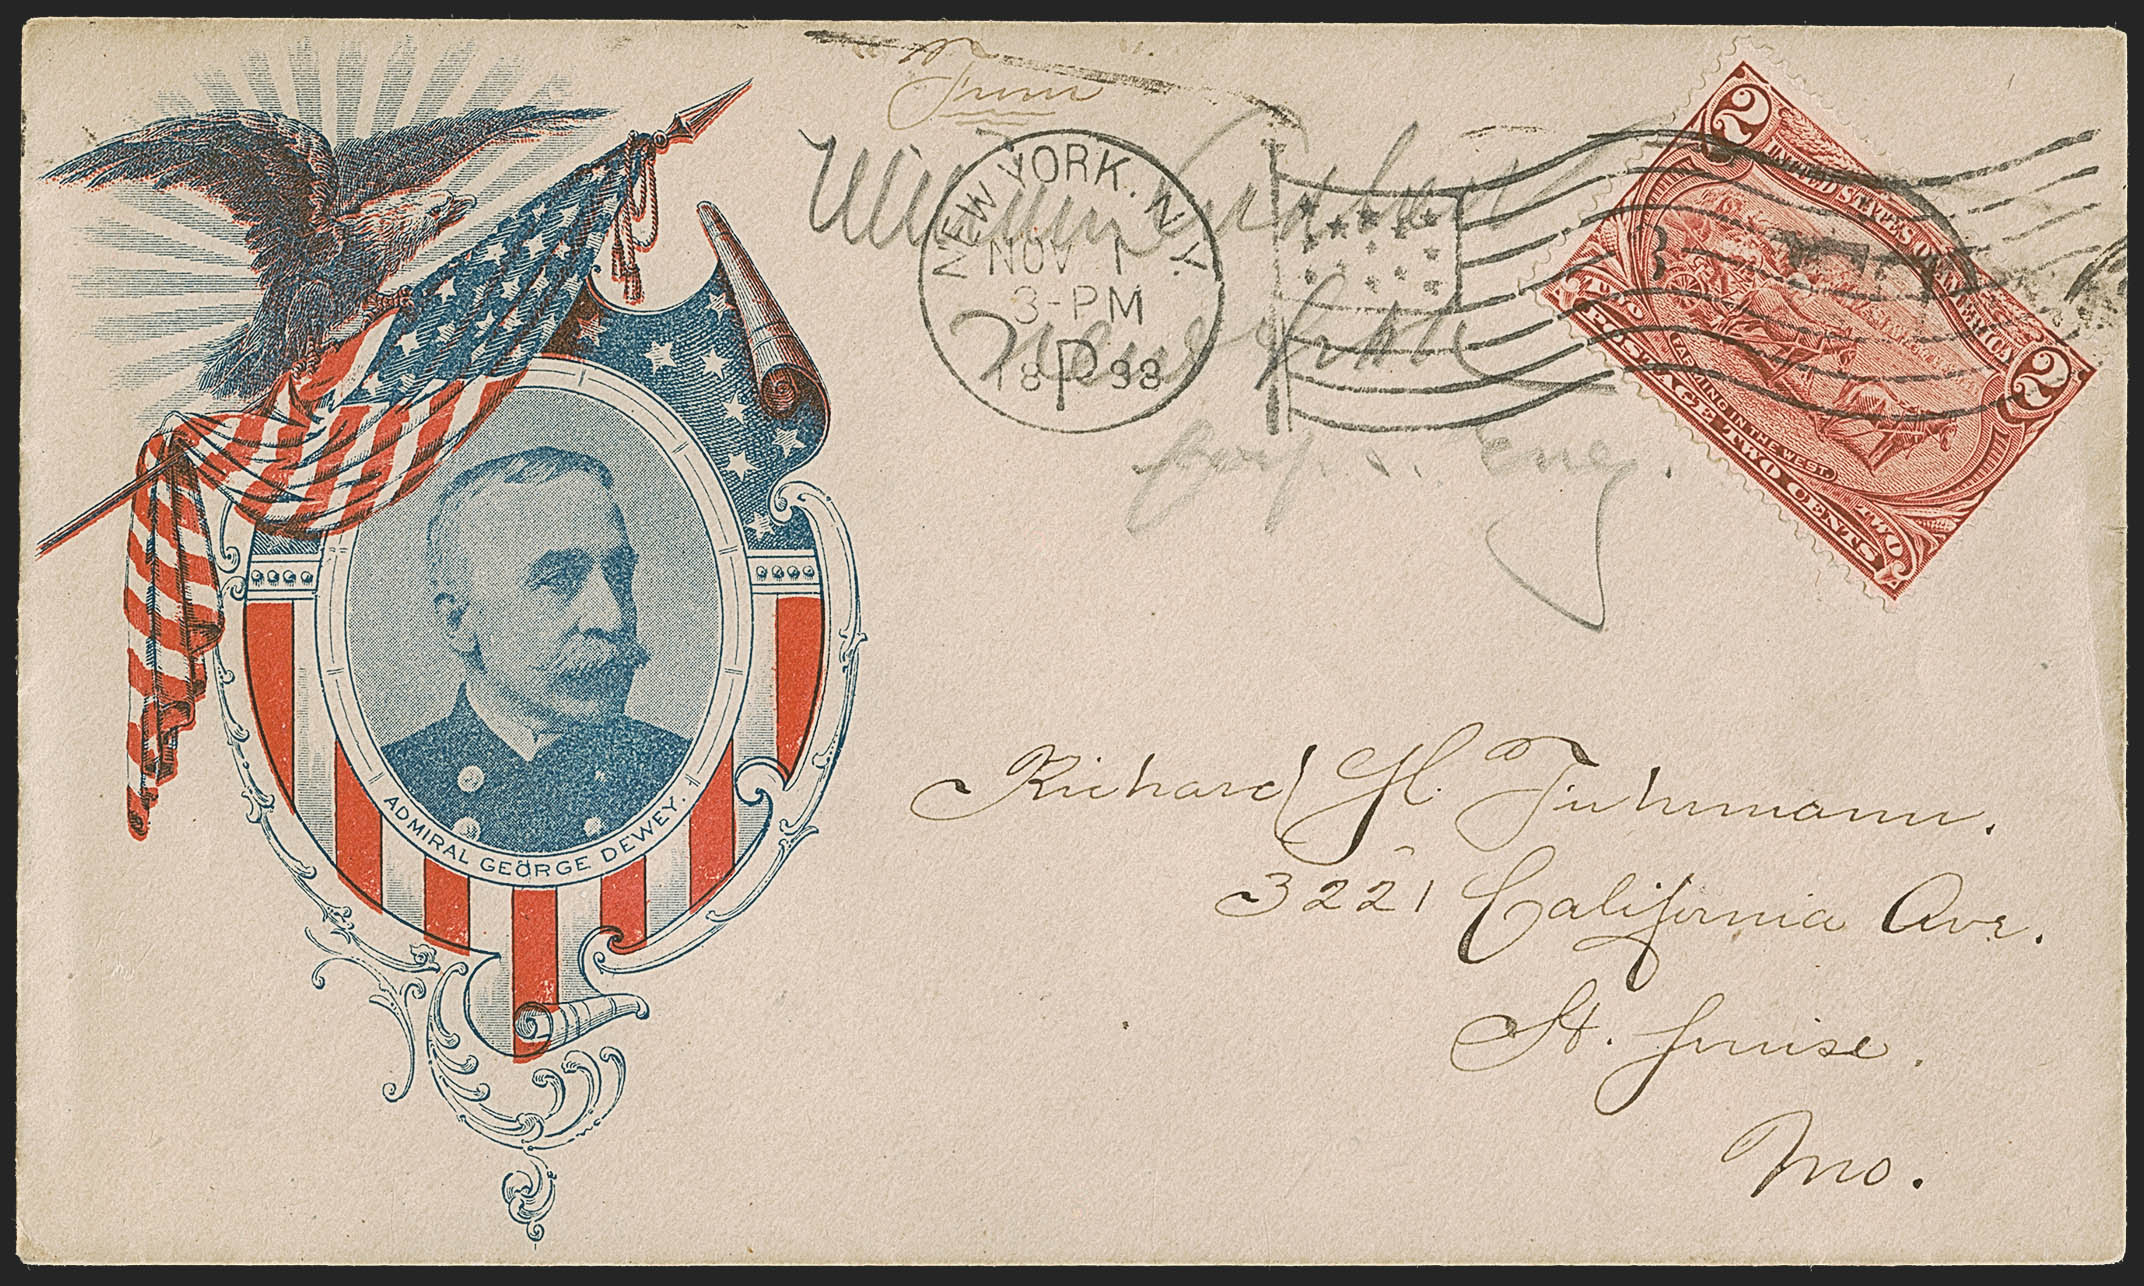 NEW YORK. N.Y.
NOV 1
3-PM
1898
2
UNITED STATES OF AMERICA
FARMING IN THE WEST.
TWO
POSTAGE TWO CENTS
TWO
2
Corps. Eng.
ADMIRAL GEORGE DEWEY.
Richard H. Fuhrmann.
3221 California Ave.
St. Louise.
Mo.